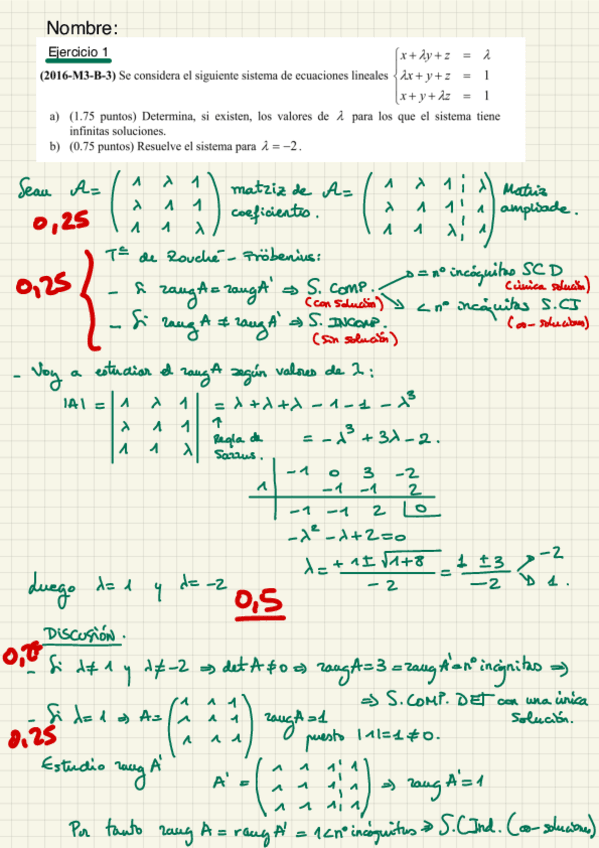 Nombre:
Ejercicio 1
(2016-M3-B-3) Se considera el siguiente sistema de ecuaciones lineales { x + λy + z = λ
λx + y + z = 1
x + y + λz = 1
a) (1.75 puntos) Determina, si existen, los valores de λ para los que el sistema tiene
infinitas soluciones.
b) (0.75 puntos) Resuelve el sistema para λ = −2.
Sean A = ( 1 λ 1 matriz de A = ( 1 λ 1 ¦ λ ) Matriz
λ 1 1 coeficientes. λ 1 1 ¦ 1 ampliada.
1 1 λ ) 1 1 λ ¦ 1
0,25
Tª de Rouché - Fröbenius:
0,25
- Si rangA = rangA' ⇒ S. COMP. = nº incógnitas SCD
(con solución) (única solución)
< nº incógnitas S.CI
(∞-soluciones)
- Si rangA ≠ rangA' ⇒ S. INCOMP.
(sin solución)
- Voy a estudiar el rangA según valores de λ:
|A| = | 1 λ 1 | = λ + λ + λ - 1 - 1 - λ³
| λ 1 1 | ↑
| 1 1 λ | Regla de Sarrus.
= -λ³ + 3λ - 2.
-1 0 3 -2
1 -1 -1 2
-1 -1 2 0
-λ² - λ + 2 = 0
λ = +1 ± √1+8 / -2 = 1 ± 3 / -2 -2
1.
Luego λ = 1 y λ = -2
0,5
DISCUSIÓN.
- Si λ ≠ 1 y λ ≠ -2 ⇒ det A ≠ 0 ⇒ rangA = 3 = rangA' = nº incógnitas ⇒
⇒ S. COMP. DET con una única
solución.
- Si λ = 1 ⇒ A = ( 1 1 1 rangA = 1
1 1 1 puesto |1| = 1 ≠ 0.
1 1 1 )
0.25
Estudio rang A'
A' = ( 1 1 1 ¦ 1
1 1 1 ¦ 1 ⇒ rang A' = 1
1 1 1 ¦ 1 )
Por tanto rang A = rang A' = 1 < nº incógnitas ⇒ S.C Ind. (∞-soluciones)